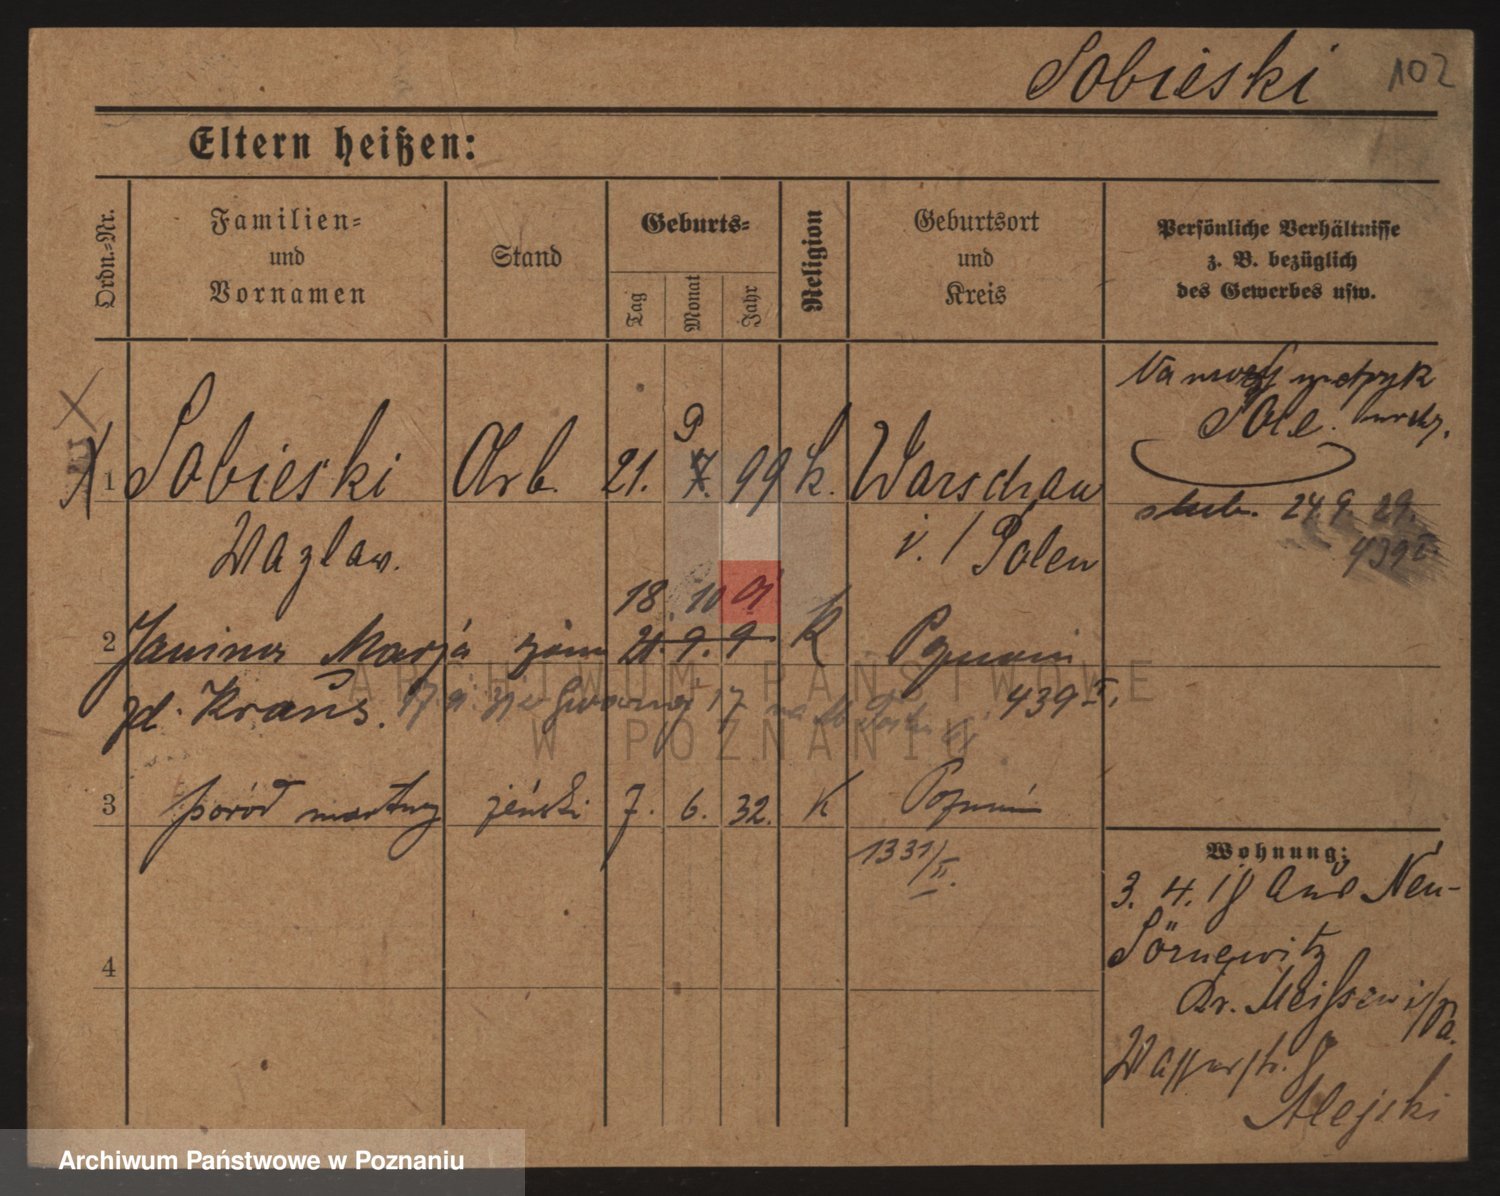 Sobieski 102
Eltern heißen:
Ordn.-Nr.
Familien-
und
Vornamen
Stand
Geburts-
Tag
Monat
Jahr
Religion
Geburtsort
und
Kreis
Persönliche Verhältnisse
z. B. bezüglich
des Gewerbes usw.
1 Sobieski Arb. 21. 9 7. 99 k. Warschau
Wazlaw. i./Polen
metryk
ślub. 24.9. 29.
439 II
18. 10 01
2 Janina Marja żona 21. 9. 9 k Poznań
zd. Kraus. 17 439 II.
3 poród martwy żeński 7. 6. 32. k Poznań
1331/II.
4
Wohnung:
3. 4. 18 aus Neu-
Sörnewitz
Kr. Meißen i/Sa.
Wasserstr. 8
Alejski
ARCHIWUM PAŃSTWOWE
W POZNANIU
Archiwum Państwowe w Poznaniu